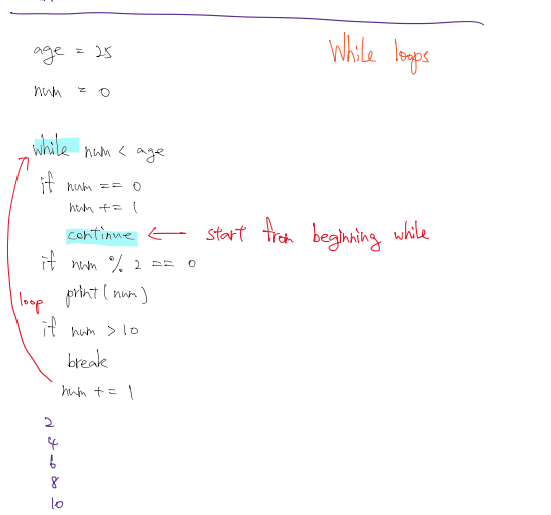 While loops
age = 25
num = 0
while num < age
if num == 0
num += 1
continue ← start from beginning while
if num % 2 == 0
print(num)
loop
if num > 10
break
num += 1
2
4
6
8
10